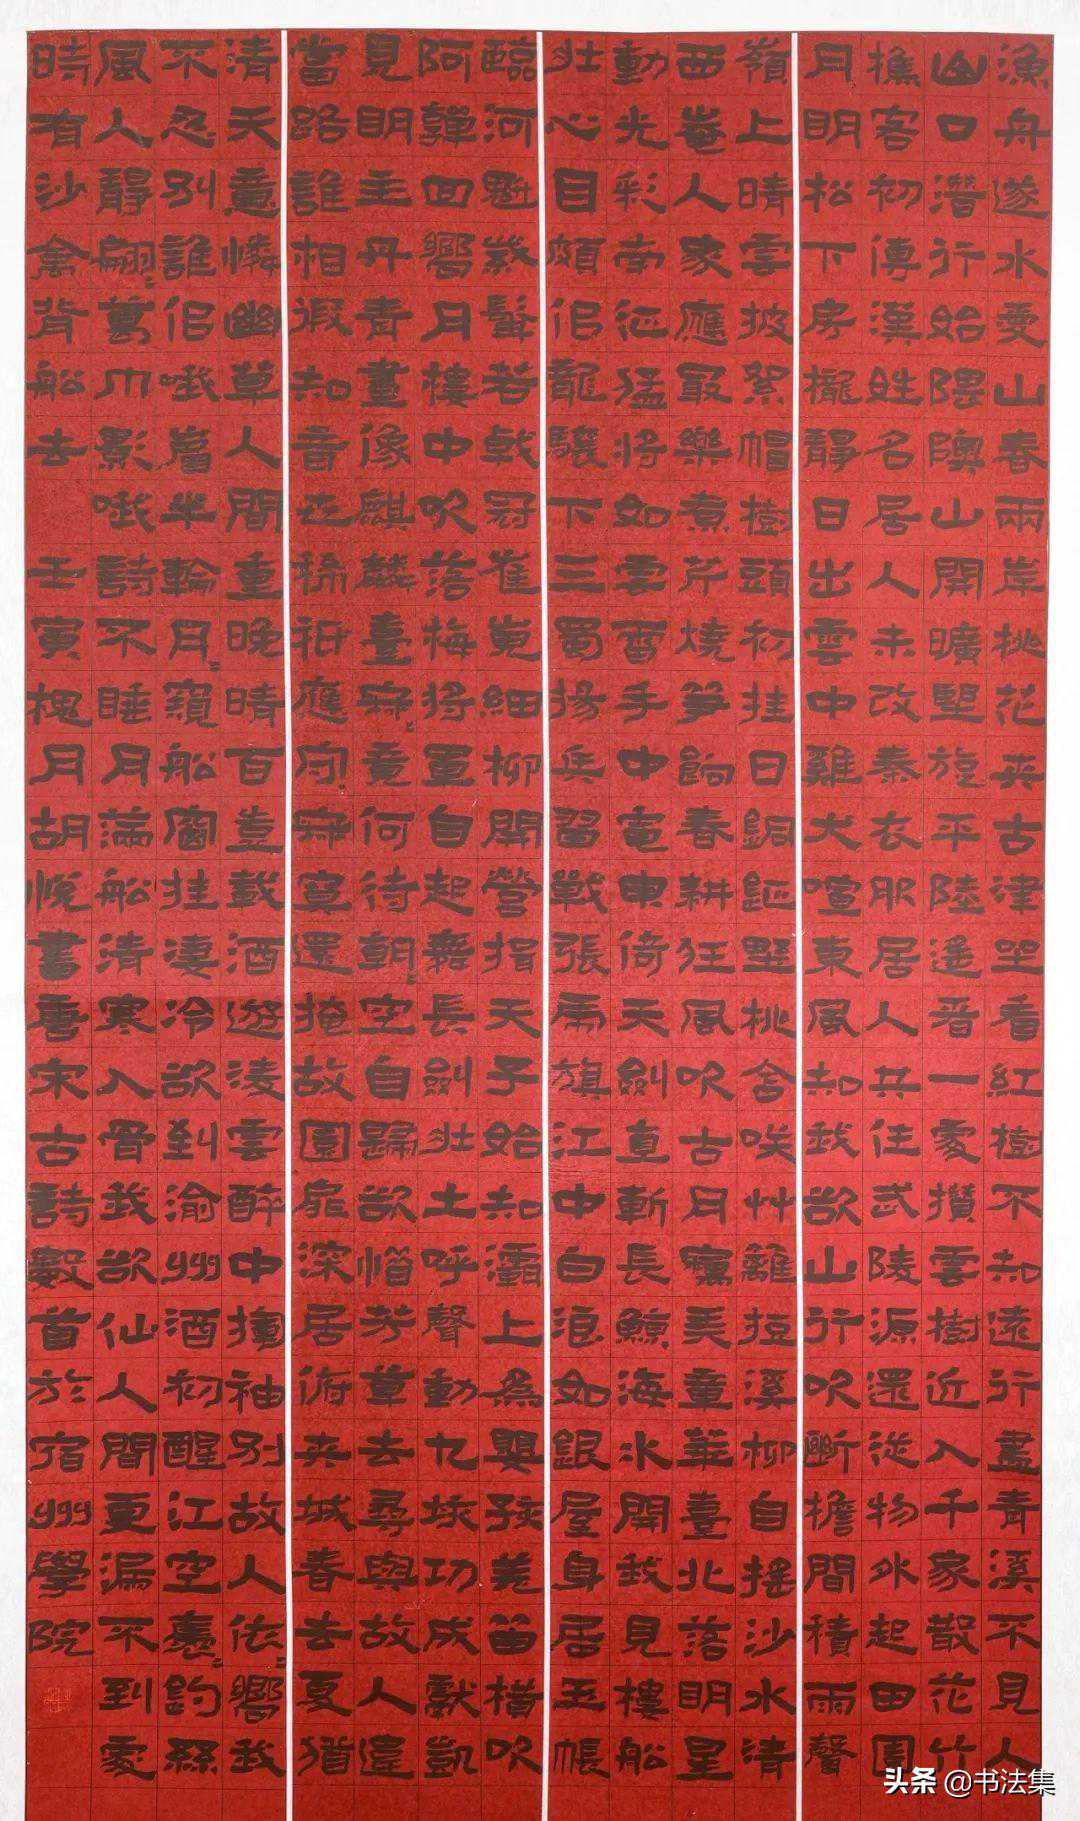 漁舟遂水愛山春兩岸桃花夾古津坐看紅樹不知遠行盡青溪不見人
山口潛行始隈隩山開曠望旋平陸遥晋一處攢雲樹近入千家散花竹
樵客初傳漢姓名居人未改秦衣服居人共住武陵源還從物外起田園
月明松下房櫳靜日出雲中雞犬喧東風知我欲山行吹斷檐間積雨聲
嶺上晴雲披絮帽樹頭初挂日銅鉦野桃含咲艸籬短溪柳自摇沙水清
西崦人家應最樂煮芹燒筍餉春耕狂風吹古月竊弄章華臺北落明星
動光彩南征猛將如雲雷手中電曳倚天劍直斬長鯨海水開我見樓船
壯心目頗似龍驤下三蜀揚兵習戰張虎旗江中白浪如銀屋身居玉帳
臨河魁紫髯若戟冠崔嵬細柳開營揖天子始知灞上為嬰孩羌笛橫吹
阿嚲回嚮月樓中吹落梅將軍自起舞長劍壯士呼聲動九垓功成獻凱
見明主丹青畫像麒麟臺寂寂竟何待朝朝空自歸欲惜芳草去尋與故人違
當路誰相假知音世稀祇應守寂寞還掩故園扉深居俯夾城春去夏猶
清天意憐幽草人間重晚晴百壹載酒遊凌雲醉中揮袖別故人依依嚮我
不忍別誰似峨眉半輪月月窺船窗挂淒冷欲到渝州酒初醒江空裊裊釣絲
風人靜翩翩萬巾影哦詩不睡月滿船清寒入骨我欲仙人間更漏不到處
時有沙禽背船去 壬寅槐月胡悅書唐宋古詩數首於宿州學院
头条 @书法集